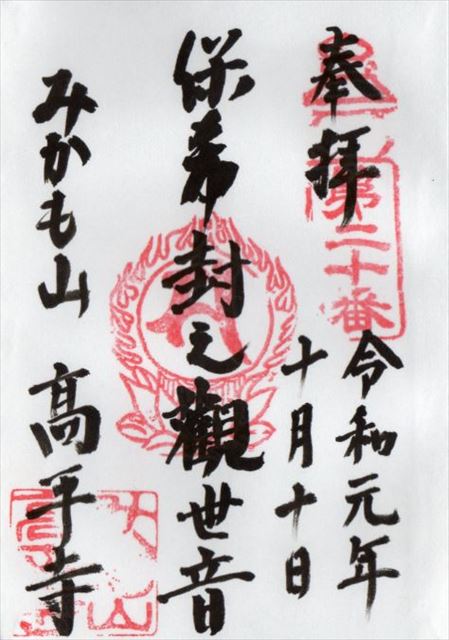 奉拝
第二十番
令和元年
十月十日
保希封之觀世音
みかも山 高平寺